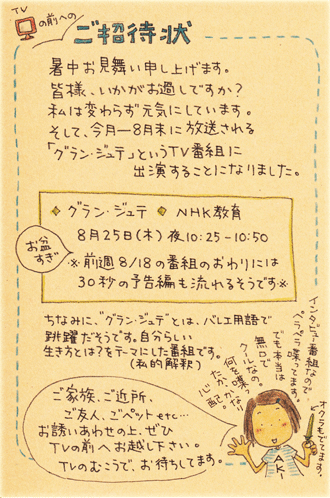 TV
の前への
ご招待状
暑中お見舞い申し上げます。
皆様、いかがお過しですか?
私は変わらず元気にしています。
そして、今月―8月末に放送される
「グラン・ジュテ」というTV番組に
出演することになりました。
グラン・ジュテ ● NHK教育
8月25日(木)夜10:25-10:50
※前週8/18の番組のおわりには
30秒の予告編も流れるそうです※
お盆
すぎ
ちなみに、"グラン・ジュテ"とは、バレエ用語で
跳躍だそうです。自分らしい
生き方とは?をテーマにした番組です。
(私的解釈)
ご家族、ご近所、
ご友人、ごペットetc...
お誘いあわせの上、ぜひ
TVの前へお越し下さい。
TVのむこうで、お待ちしてます。
インタビュー番組なので
ペラペラ喋ってます。
でも本当は
無口で
クールなの。
何を喋ったか
心配
オクラもでてます。
AKI